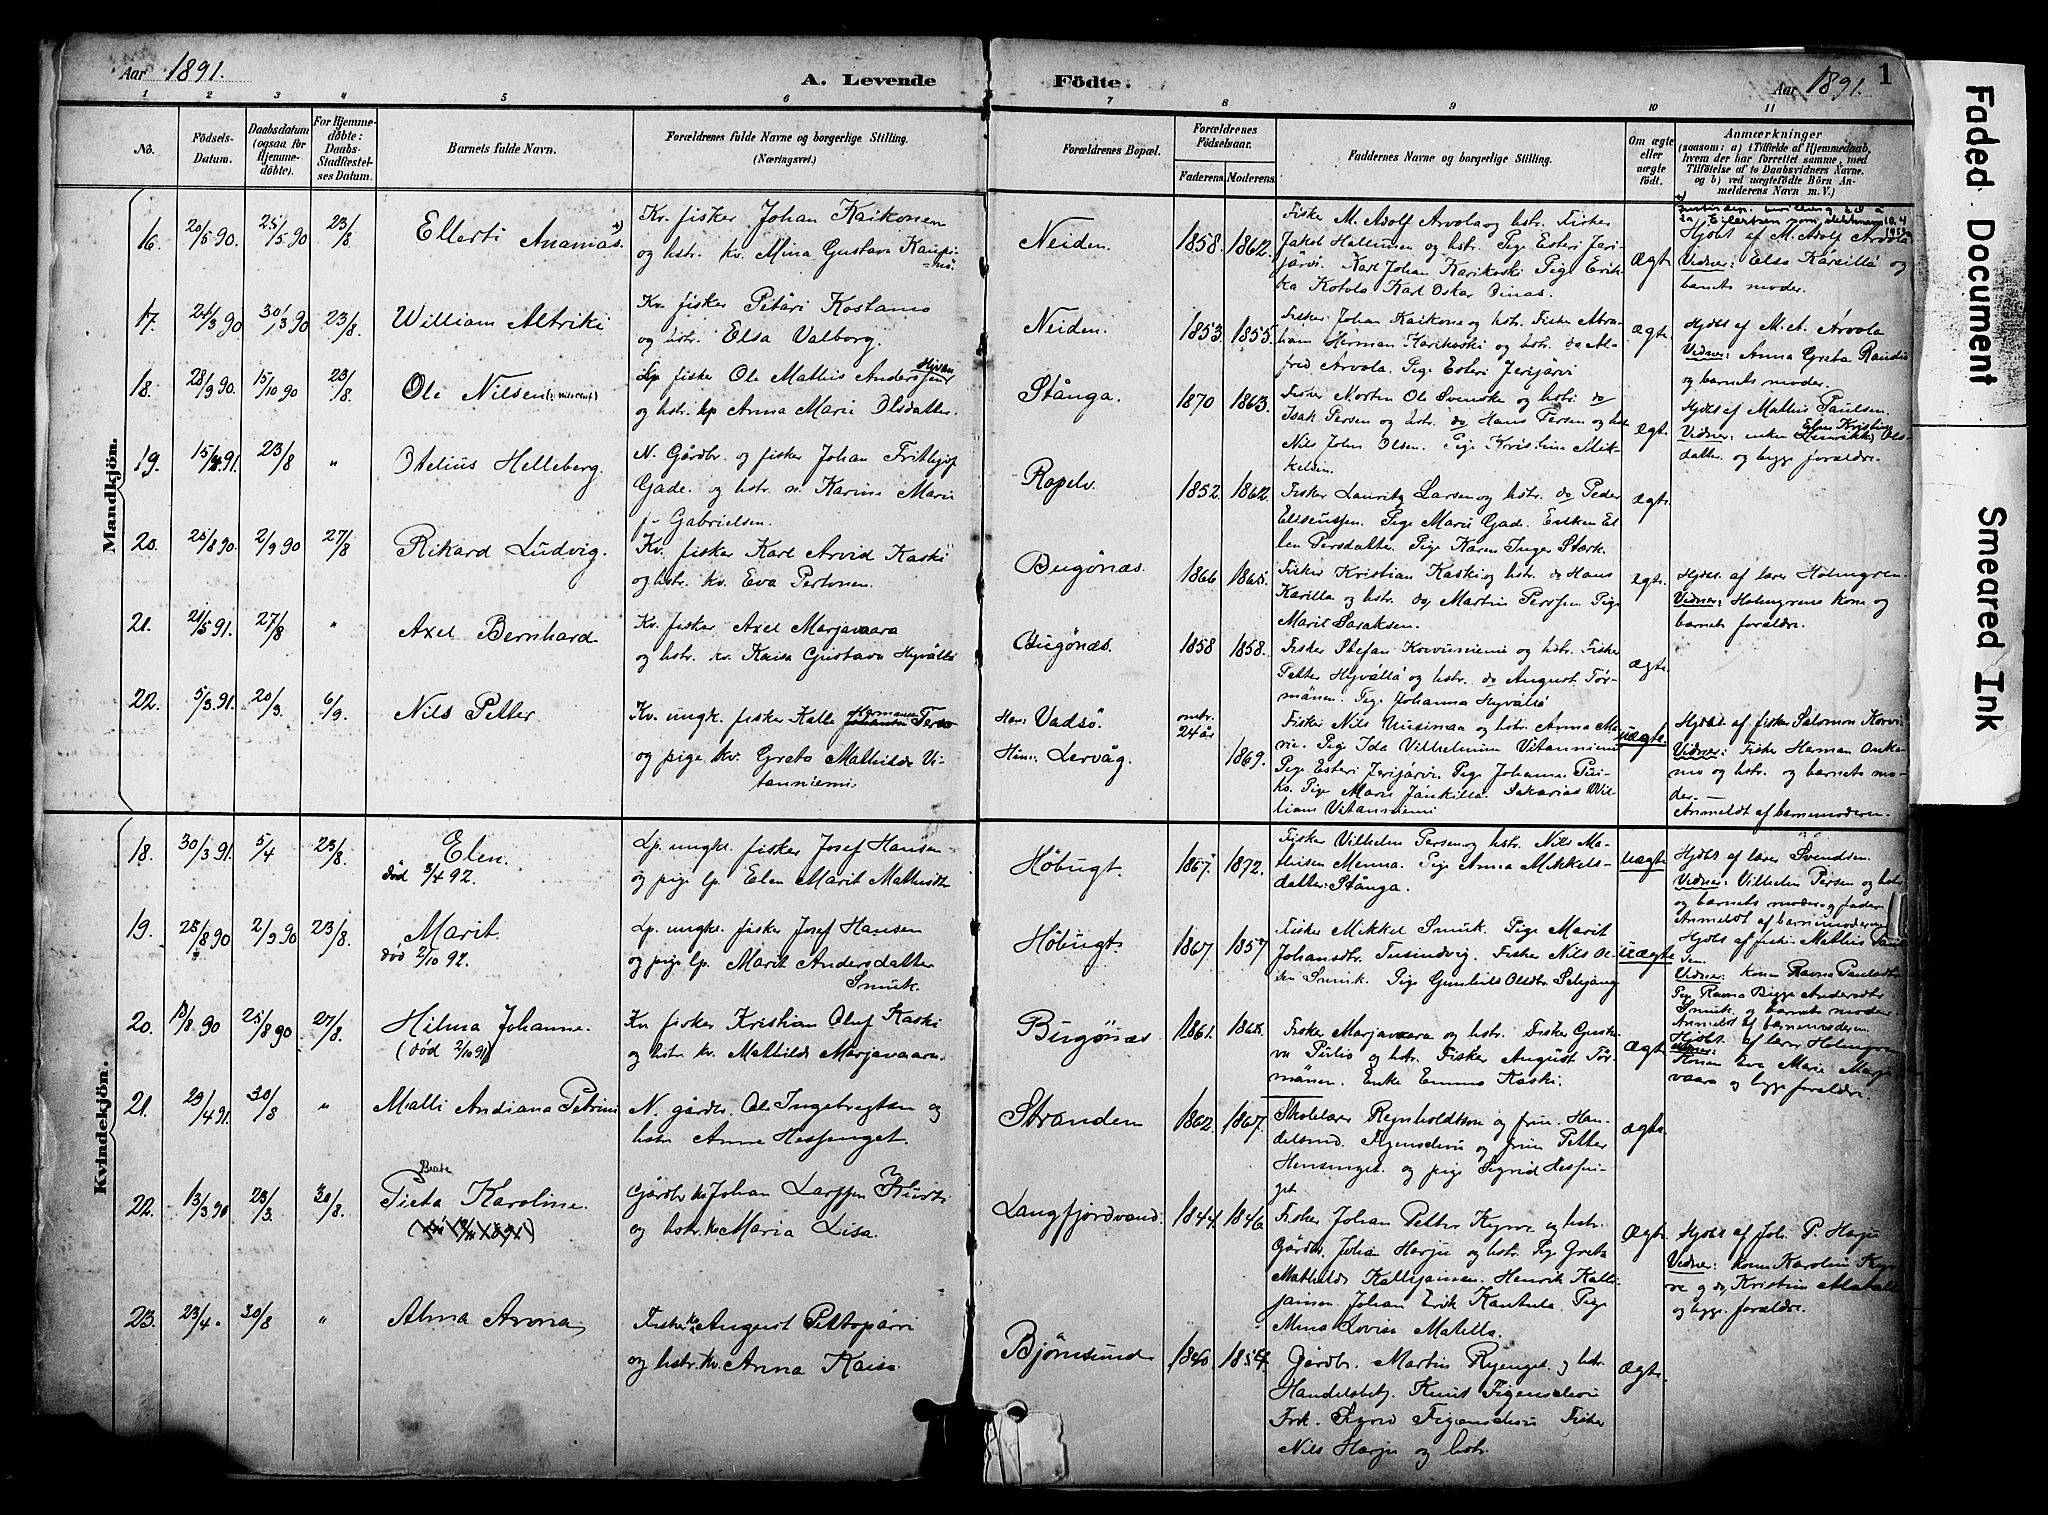 Aar 1891.
A. Levende
Födte.
Aar 1891.
1
1 2 3 4 5 6 7 8 9 10 11
No.
Födsels-
Datum.
Daabsdatum
(ogsaa for
Hjemme-
döbte).
For Hjemme-
döbte:
Daabs-
Stadfæstel-
ses Datum.
Barnets fulde Navn.
Forældrenes fulde Navne og borgerlige Stilling.
(Næringsvei.)
Forældrenes Bopæl.
Forældrenes
Födselsaar.
Faderens. Moderens.
Faddernes Navne og borgerlige Stilling.
Om ægte
eller
uægte
födt.
Anmærkninger
(saasom: a) i Tilfælde af Hjemmedaab,
hvem der har forrettet samme, med
Tilföielse af to Daabsvidners Navne,
og b) ved uægtefödte Börn An-
melderens Navn m. V.)
Mandkjön.
16. 20/5 90. 25/5 90 23/8 Ellerti Ananias
Kv. fisker Johan Kaikonen
og hstr. kv. Mina Gustava
Neiden. 1858. 1862.
Fisker M. Adolf Arvola og hstr. Fisker
Jakob og hstr. Pige Esteri Jeri-
järvi. Karl Johan Karikoski Pige Erik-
ka Kotola Karl Oskar
ægt.
Hjdbt af M. Adolf Arvola
Vidner: Elsa og
barnets moder.
17. 30/3 90 23/8 William Altriki
Kv. fisker Petäri Kostamo
og hstr. Elsa Valborg.
Neiden. 1853. 1855.
Fisker Johan Kaikone og hstr. Fisker Abra-
ham Herman Karikoski og hstr. do Al-
fred Arvola. Pige Esteri Jerijärvi
ægt.
Hjdbt af M. A. Arvola
Vidner: Anna Greta
og barnets moder.
18. 28/9 90. 15/10 90 23/8 Ole Nilsen
Lp fisker Ole Mathis Anderssen
og hstr. lp Anna Marie Olsdatter.
Stånga. 1870 1863.
Fisker Morten Ole Svenske og hstr. do
Isak Persen og hstr. do Hans Persen og hstr
Nils John Olsen. Pige Kristine Mik-
kelsen.
ægt.
Hjdbt af Mathis Paulsen.
Elen Kristine
Vidner: enken Ols-
datter. og begge forældre.
19. 23/8 " Otelius Helleborg.
N. Gårdbr. og fisker Johan Frithjof
Gade. og hstr. n. Karine Marie
f. Gabrielsen.
Ropelv. 1852. 1862.
Fisker Lauritz Larsen og hstr. do Peder
Eliseussen. Pige Marie Gade. Enken El-
len Persdatter. Pige Karen Inger Stærk.
ægt.
20. 25/8 90. 2/9 90 27/8 Rikard Ludvig.
Kv. fisker Karl Arvid Kaski
og hstr. kv. Eva Pertonen.
Bugönæs. 1866
Fisker Kristian Kaski og hstr. do Hans
Karilla og hstr. do Martin Perssen Pige
Marit Saraksen.
ægt.
Hjdbt. af lærer Holmgren.
Vidner: Holmgrens kone og
barnets forældre.
21. 27/8 " Axel Bernhard
Kv. fisker Axel Marjavaara
og hstr. kv. Kaisa Gustava Hyvällä
Bugönæs. 1858 1858.
Fisker Stefan Korvuniemi og hstr. Fisker
Petter Hyvällä og hstr. do August Tör-
mänen. Pige Johanna Hyvällä
ægt.
22. 5/3 91. 20/3. 6/9 Nils Petter.
Kv. ungk. fisker Kalle
og pige kv. Greta Mathilde Vi-
tanniemi.
Han: Vadsö. omtr. 24 år
Hun: Lervåg. 1869.
Fisker Nils Uusimaa og hstr. Anna Ma-
rie. Pige Ida Vilhelmina Vitanniemi
Pige Esteri Jerijärvi. Pige Johanna
Pige Marie Sakarias Wil-
liam Vitanniemi
uægte.
Hjdbt. af fisker Salomon
Vidner: Fisker Herman
og hstr. og barnets mo-
der.
Anmeldt af barnemoderen.
Kvindekjön.
18. 30/3 91. 5/4 23/8. Elen.
död 3/4 92.
Lp. ungk. fisker Josef Hansen
og pige lp. Elen Marit Mathisdtr
Höbugt. 1867. 1872.
Fisker Vilhelm Persen og hstr. Nils Ma-
thisen Menna. Pige Anna Mikkels-
datter: Stånga.
uægt.
Hjdbt af lærer Svendsen.
Vidner: Vilhelm Persen og hstr
og barnets moder og fader
Anmeldt af barnemoderen
19. 28/8 90 2/9 90 23/8. Marit.
död 2/10 92.
Lp. ungk. fisker Josef Hansen
og pige lp. Marit Andersdatter
Smuk.
Höbugt. 1867 1857
Fisker Mikkel Smuk. Pige Marit
Johansdtr. Tusindvig. Fisker Nils Ol-
sen Smuk. Pige Gunhild Olsdtr.
uægte
Hjdbt af fisk. Mathis
Vidner: konen Ravna Paulsdtr
Pige Ravna Bigge Andersdtr.
Smuk. og barnets moder
Anmeldt af barnemoderen.
20. 25/8 90 27/8. Hilma Johanne.
(död 2/10 91)
Kv fisker Kristian Oluf Kaski
og hstr. kv. Mathilde Marjavaara.
Bugönæs 1861.
Fisker Marjavaara og hstr. Fisker Gusta-
va og hstr. Fisker August Tör-
mänen. Enke Emma Kaski.
ægt.
Hjdbt. af lærer Holmgren
Vidner:
Konen Eva Marie Marja-
vaara og begge forældre.
21. 23/4 91. 30/8 " Malli Andiana Petrine
N. gårdbr. Ole Ingebregtsen og
hstr. Anne Hessenget.
Stranden 1862. 1867.
Skolelærer Reynholdtson og frue. Han-
delsmd. Figenschou og frue Petter
og pige Sigrid
ægte
22. 13/3 90 23/3. 30/8. Beate
Pieta Karoline.
Gårdbr kv Johan Larssen
og hstr. kv Maria Lisa.
Langfjordvand. 1844. 1846.
Fisker Johan Petter og hstr.
Gårdbr. Johan Harju og hstr. Pige Greta
Mathilde Kallijainen. Henrik Kalli-
jainen Johan Erik Kantola. Pige
Mina Lovise Matilla.
Ægt.
Hjdbt af Joh. P. Harju
Vidner: konen Karoline
og do Kristine
og begge forældre.
23. 23/4 " 30/8 " Alma Anna
Fisker kv. August Pettopärri
og hstr. kv. Anna Kaisa
Björnsund 1840. 1854.
Gårdbr. Martin og hstr.
Handelsbetj. Knut Figenschou
Frk. Sigrid Figenschou Fisker
Nils Harju og hstr.
Ægt.
Faded Document
Smeared Ink